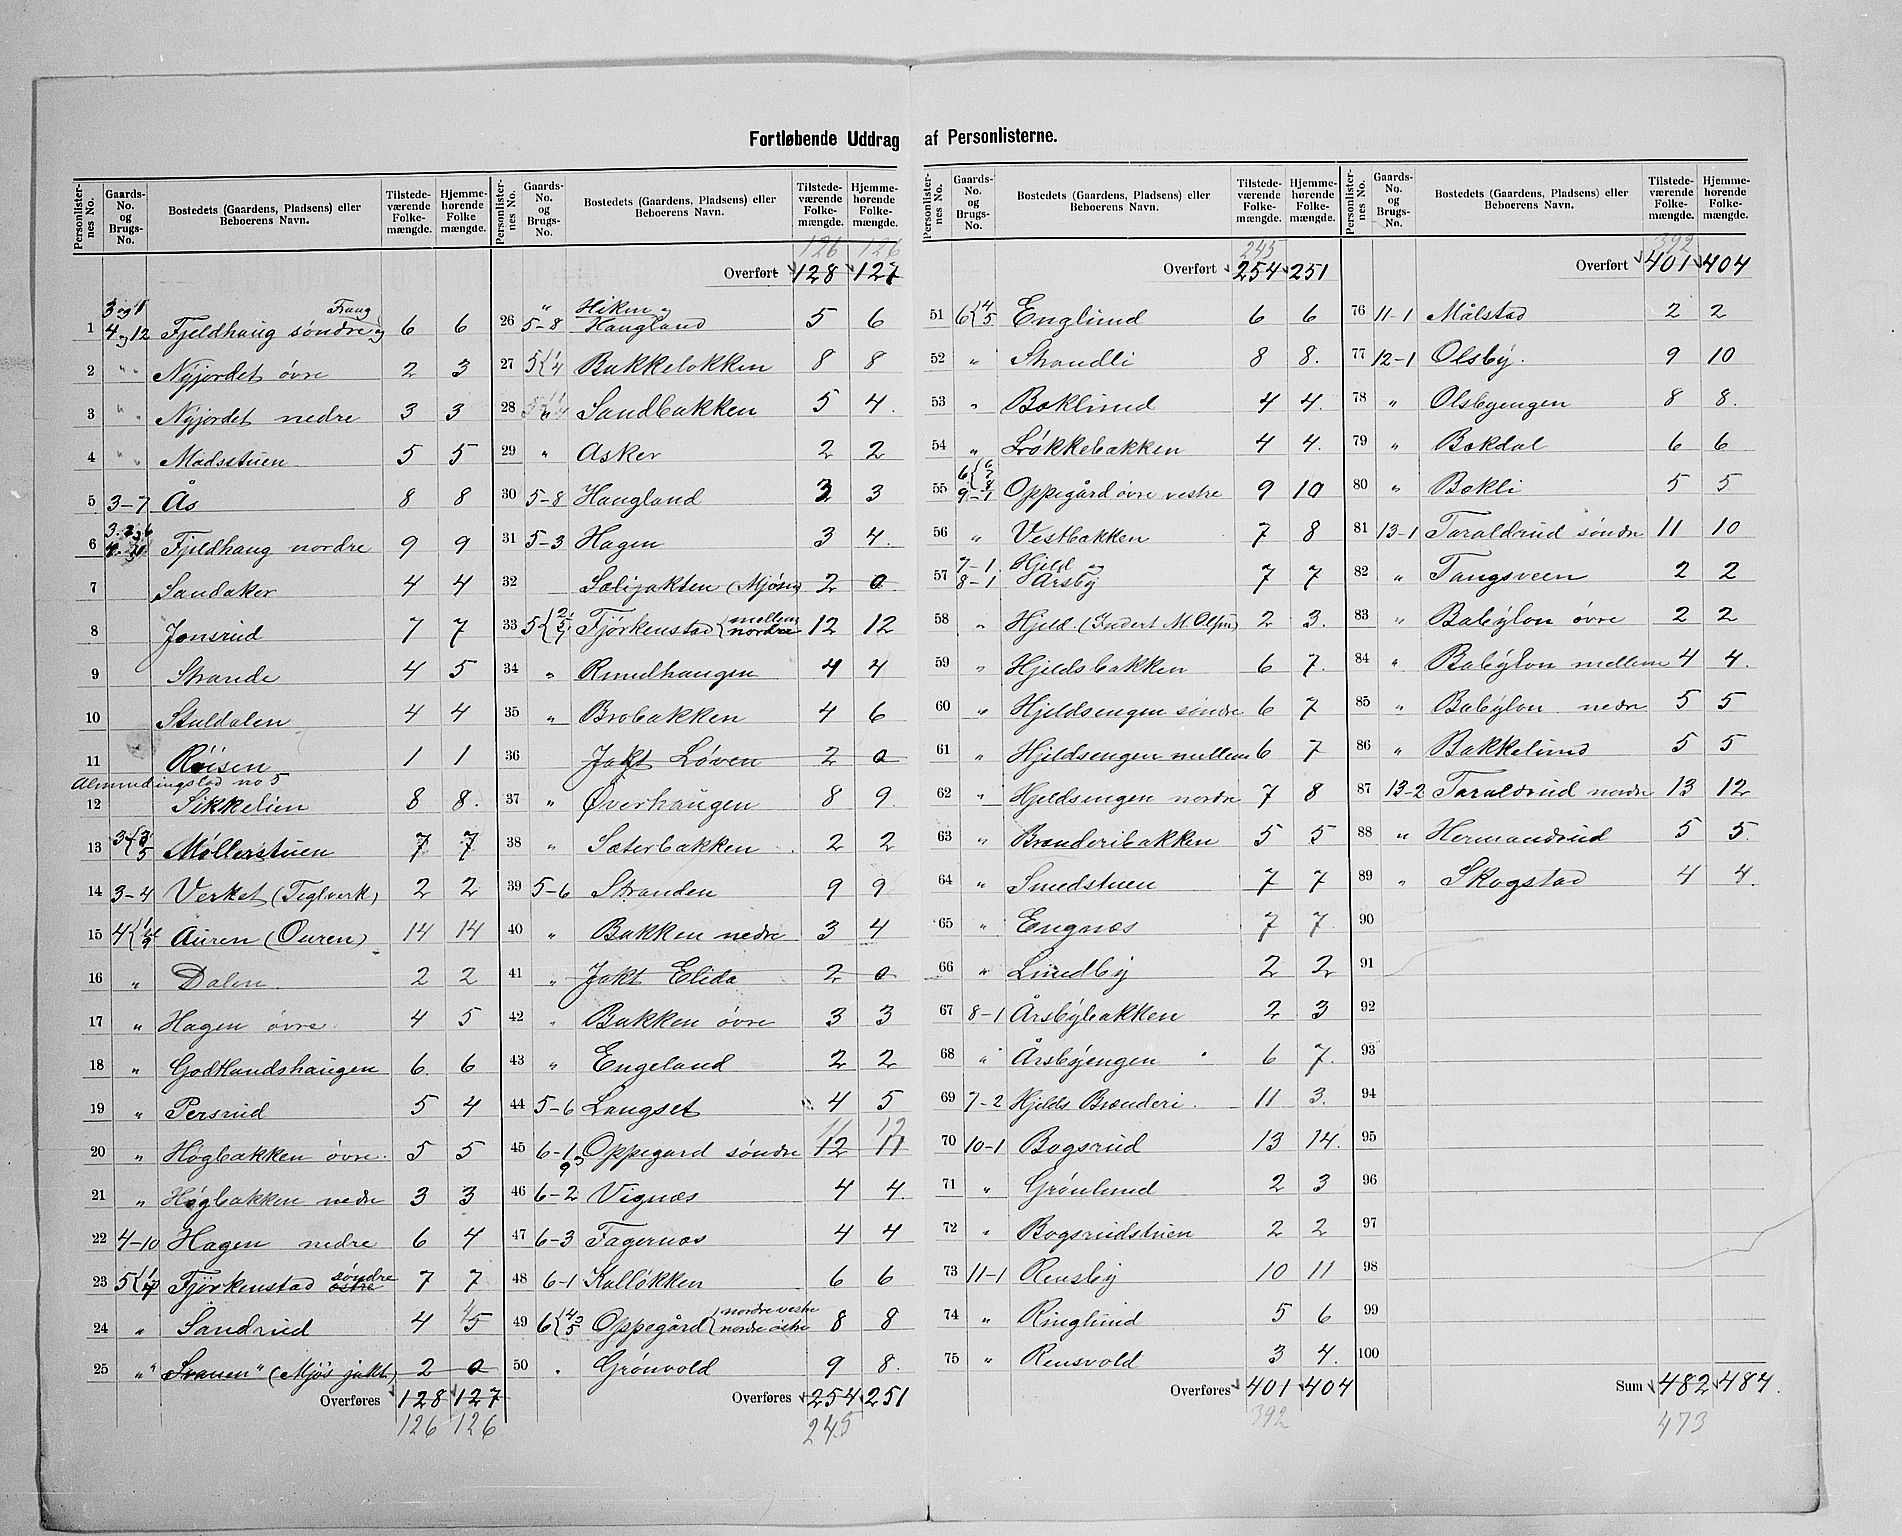 Fortløbende Uddrag af Personlisterne.
Personlister-nes No. Gaards-No. og Brugs-No. Bostedets (Gaardens, Pladsens) eller Beboerens Navn. Tilstede-værende Folke-mængde. Hjemme-hørende Folke mængde.
1 3 og 1 4 og 12 Fjeldhaug søndre og Fraug 6 6
2 " " Nyjordet øvre 2 3
3 " " Nyjordet nedre 3 3
4 " " Madsstuen 5 5
5 3-7 Ås 8 8
6 Fjeldhaug nordre 9 9
7 Sandaker 4 4
8 Jonsrud 7 7
9 Strande 4 5
10 Stuldalen 4 4
11 Røisen 1 1
Almindingslod no 5
12 Sikkelien 8 8.
13 3{3 5 Møllerstuen 7 7
14 3-4 Verket (Teglverk) 2 2
15 Auren (Ouren) 14 14
16 " Dalen 2 2
17 " Hagen øvre 4 5
18 " Godtlandshaugen 6 6
19 " Persrud 5 4
20 " Høgbakken øvre. 5 5
21 " Høgbakken nedre 3 3
22 4-10 Hagen nedre 6 4
23 Fjørkenstad søndre østre 7 7
24 " Sandrud 4 4 5
25 " "Svanen" (Mjøs jakt) 2 0
Overføres 128 127
126 126
Personlister-nes No. Gaards-No. og Brugs-No. Bostedets (Gaardens, Pladsens) eller Beboerens Navn. Tilstede-værende Folke-mængde. Hjemme-hørende Folke-mængde.
126 126
Overført 128 127
26 " 5-8 Hiken og Haugland 5 6
27 5{1 4 Bakkeløkken 8 8
28 Sandbakken 5 4.
29 " Asker 2 2
30 5-8 Haugland 3 3
31 5-3 Hagen 3 4.
32 Solijakten (Mjøsen) 2 0
33 5{2 5 7 Fjørkenstad {mellem nordre 12 12
34 " Rundhaugen 4 4
35 " Brobakken 4 6
36 Jakt Løven 2 0
37 " Øverhaugen 8 9
38 " Sæterbakken 2 2
39 5-6 Stranden 9 9
40 " Bakken nedre 3 4
41 " Jakt Elida 2 0
42 " Bakken øvre 3 3
43 " Engeland 2 2
44 5-6 Langset 4 5
11 12
45 6-1 9 Oppegård søndre 12 11
46 6-2 Vignæs 4 4.
47 6-3 Fagernæs 4 4
48 6-1 Kalløkken 6 6
49 6{4 5 Oppegård {nordre vestre nordre østre 8 8
50 " Grønvold 9 8.
Overføres 254 251
245
Personlister-nes No. Gaards-No. og Brugs-No. Bostedets (Gaardens, Pladsens) eller Beboerens Navn. Tilstede-værende Folke-mængde. Hjemme-hørende Folke-mængde.
245
Overført 254 251
51 6{4 5 Englund 6 6
52 " Strandli 8 8.
53 " Bæklund 4 4.
54 " Løkkebakken 4 4.
55 6{6 7 8 9-1 Oppegård øvre vestre 9 10
56 " Vestbakken 7 8
57 7-1 8-1 Hjeld og Årsby 7 7
58 " Hjeld. (Inderst M. Olsen) 2 3.
59 " Hjeldsbakken 6 7.
60 " Hjeldsengen søndre 6 7
61 " Hjeldsengen mellem 6 7
62 " Hjeldsengen nordre 7 8
63 " Brænderibakken 5 5
64 " Smedstuen 7 7
65 " Engnæs 7 7.
66 " Lundby 2 2
67 8-1 Årsbybakken 2 3
68 " Årsbyengen 6 7.
69 7-2 Hjelds Brænderi. 11 3.
70 10-1 Bogsrud 13 14.
71 " Grønlund 2 3
72 " Bogsrudstuen 2 2
73 11-1 Rensby 10 11
74 " Ringlund 5 6
75 " Rensvold 3 4.
Overføres 401 404
392
Personlister-nes No. Gaards-No. og Brugs-No. Bostedets (Gaardens, Pladsens) eller Beboerens Navn. Tilstede-værende Folke-mængde. Hjemme-hørende Folke-mængde.
392
Overført 401 404
76 11-1 Målstad 2 2
77 12-1 Olsby. 9 10
78 " Olsbyengen 8 8.
79 " Bækdal 6 6
80 " Bækli 5 5
81 13-1 Taraldrud søndre 11 10
82 " Tangsveen 2 2
83 " Babylon øvre 2 2
84 " Babylon mellem 4 4.
85 " Babylon nedre 5 5
86 " Bakkelund 5 5
87 13-2 Taraldrud nordre 13 12
88 " Hermandrud 5 5.
89 " Skogstad 4 4.
90
91
92
93
94
95
96
97
98
99
100
Sum 482 484.
473